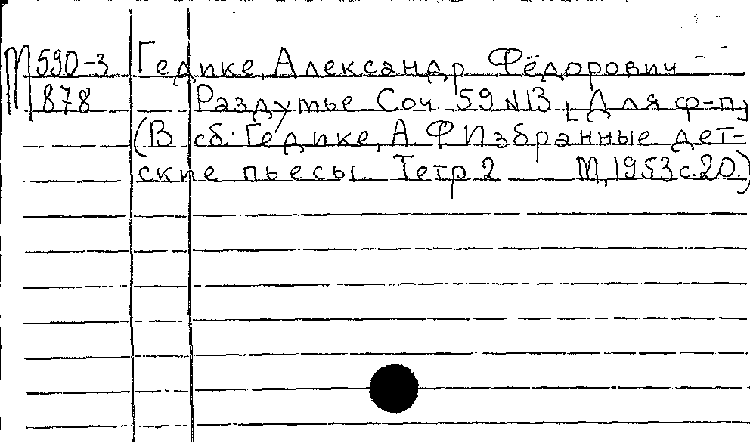 М 590-3 Гедике, Александр Фёдорович
878 Раздумье Соч 59 N 13 [Для ф-п]
(В сб: Гедике, А. Ф Избранные дет-
ские пьесы Тетр 2 М, 1953 с. 20)